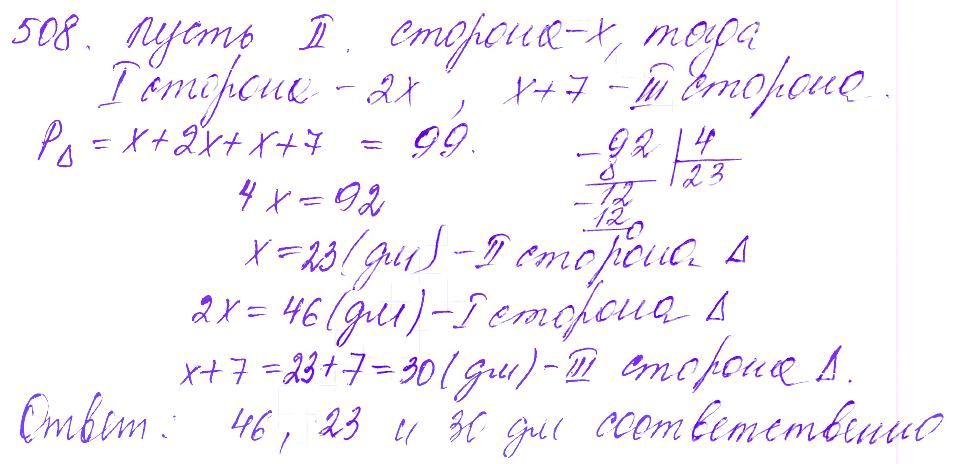 508. Пусть II. сторона - x, тогда
I сторона - 2x, x+7 - III сторона.
P△ = x+2x+x+7 = 99.
4x = 92
-92 | 4
8 23
-12
12
0
x = 23 (дм) - II сторона △
2x = 46 (дм) - I сторона △
x+7 = 23+7 = 30 (дм) - III сторона △.
Ответ: 46, 23 и 30 дм соответственно